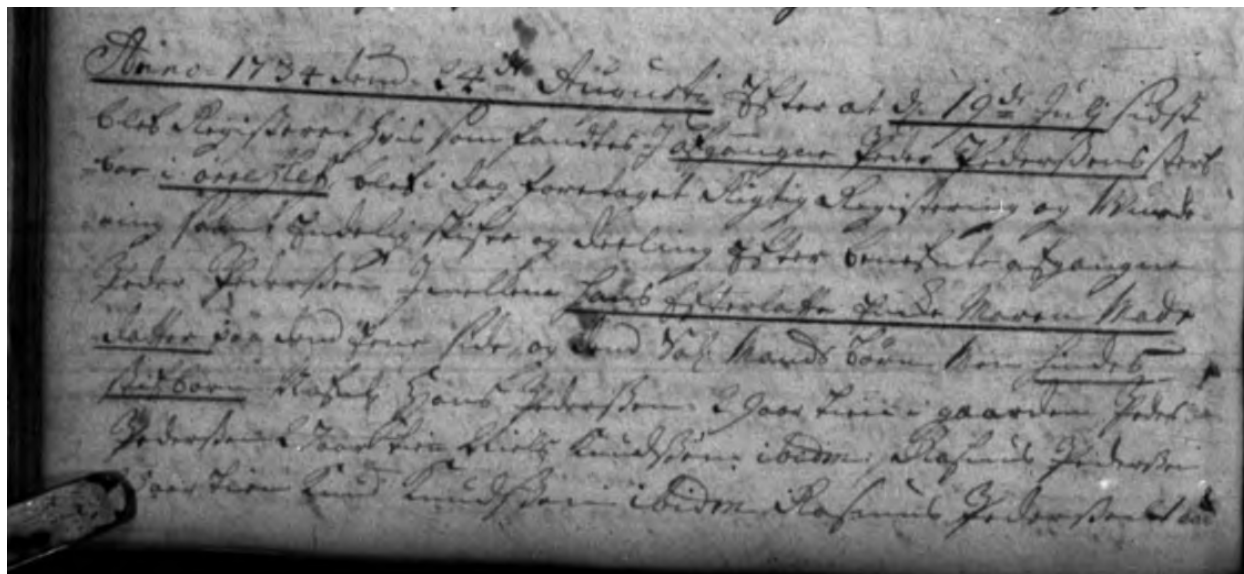 Anno 1734 dend 24de Augustij Efter at d: 19de Julij sidst
blef Registeret hvis som fandtes I afgangne Peder Pedersens sterf
boe i blef i dag foretaget Rigtig Registering og Wurde
ring samt Endelig skifte og deeling Efter benefnte afgangne
Peder Pedersen Imellem hans Efterlatte Maren Mads
datter paa dend Eene side, og dend Sal: Mands børn Men hindes
stifbørn Nafnl: Hans Pedersen tien i gaarden Peder
Pedersen tien Niels Knudsen ibidm, Rasmus Pedersen
tien Knud Knudsen ibidm Rasmus Pedersen